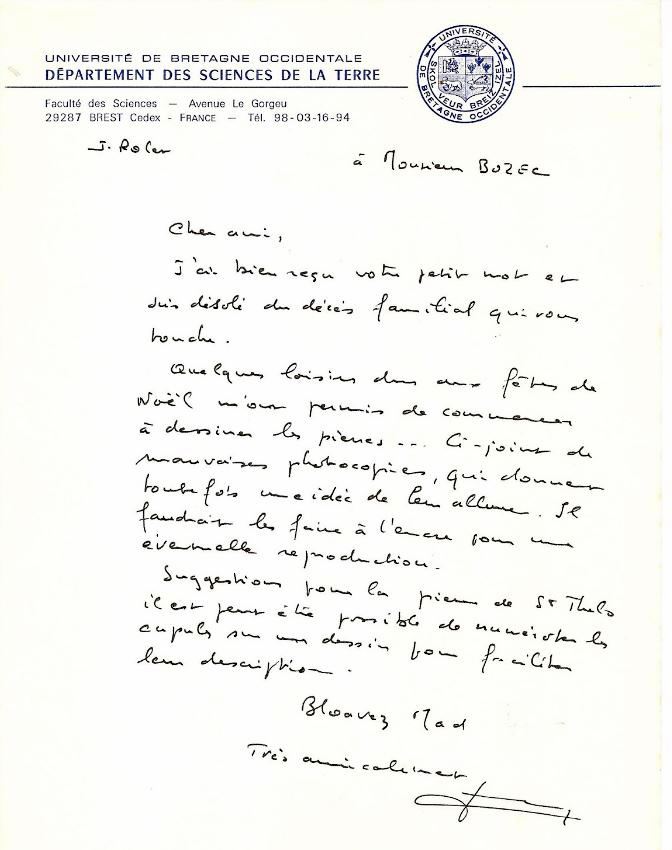 UNIVERSITÉ DE BRETAGNE OCCIDENTALE
DÉPARTEMENT DES SCIENCES DE LA TERRE
UNIVERSITÉ DE BRETAGNE OCCIDENTALE
SKOL VEUR BREIZ IZEL
Faculté des Sciences — Avenue Le Gorgeu
29287 BREST Cedex - FRANCE — Tél. 98-03-16-94
J. Rolet
à Monsieur BOZEC
Cher ami,
J'ai bien reçu votre petit mot et
suis désolé du décès familial qui vous
touche.
Quelques loisirs dus aux fêtes de
Noël m'ont permis de commencer
à dessiner les pierres... Ci-joint de
mauvaises photocopies, qui donnent
toutefois une idée de leur allure. Il
faudrait les faire à l'encre pour une
éventuelle reproduction.
Suggestions pour la pierre de St Thelo
il est peut être possible de numéroter les
cupules sur un dessin pour faciliter
leur description.
Bloavez Mad
Très amicalement